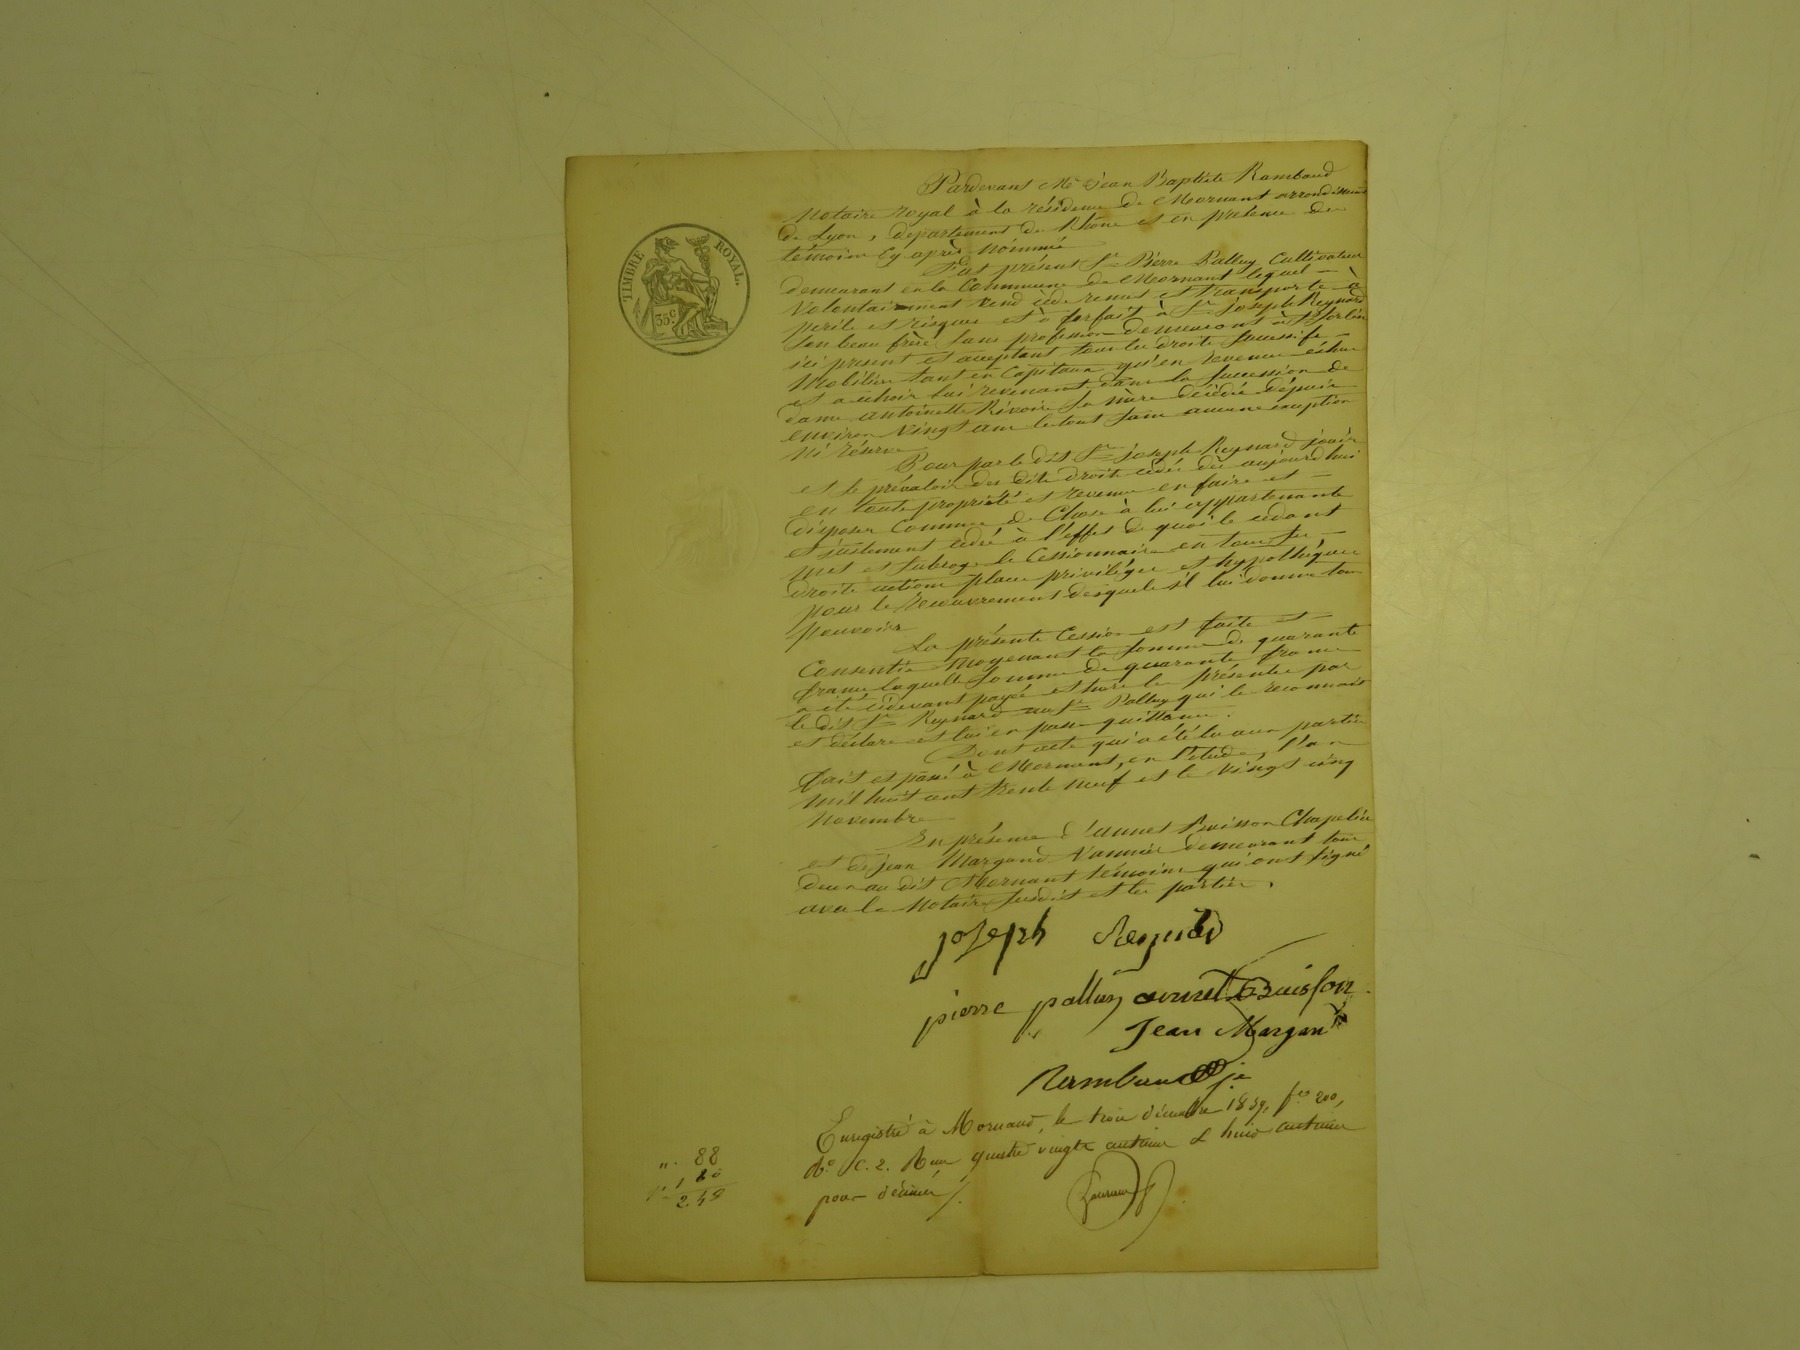 Pardevant Me Jean Baptiste Rambaud
Notaire royal à la résidence de Mornant arrondissement
de Lyon, département du Rhône et en présence des
témoins cy après nommés
Fut présent Sr Pierre Palluy Cultivateur
demeurant en la Commune de Mornant lequel
Volontairement vend cède remet et transporte à
périls et risques et à forfait à Sr Joseph Reynard
son beau frère sans profession demeurant à St Sorlin
ici présent et acceptant tous les droits successifs
Mobiliers tant en Capitaux qu'en revenus échus
et à échoir lui revenant dans la succession de
dame antoinette Rivoire sa mère décédée dépuis
environ vingt ans le tout sans aucune exception
ni réserve
Pour par le dit Sr Joseph Reynard jouir
et se prévaloir des dits droits cédés dès aujourd'hui
en toute propriété et revenus en faire et
disposer Comme de Chose à lui appartenante
et justement cédée à l'effet de quoi le cédant
met et subroge le Cessionnaire en tous ses
droits actions places privilèges et hypothèques
pour le recouvrement desquels il lui donne tous
pouvoirs
La présente Cession est faite et
Consentie Moyenant la somme de quarante
francs laquelle somme de quarante francs
a été cidevant payée et hors les présentes par
le dit Sr Reynard au Sr Palluy qui le reconnait
et déclare et lui en passe quittance.
Dont acte qui a été lu aux parties
fait et passé à Mornant, en l'étude, l'an
mil huit cent trente neuf et le vingt cinq
Novembre
En présence d'annet Buisson Chapelier
et de Jean Margand Vannier demeurant tous
deux au dit Mornant témoins qui ont signé
avec le Notaire susdit et les parties.
joseph Reynard
pierre palluy annet Buisson
Jean Margand
Rambaud
TIMBRE ROYAL.
35c
Enregistré à Mornand, le trois décembre 1839, fo 200,
Ro C. 2. Reçu quatre vingts centimes & huit centimes
pour décimes
88
1 60
2.48